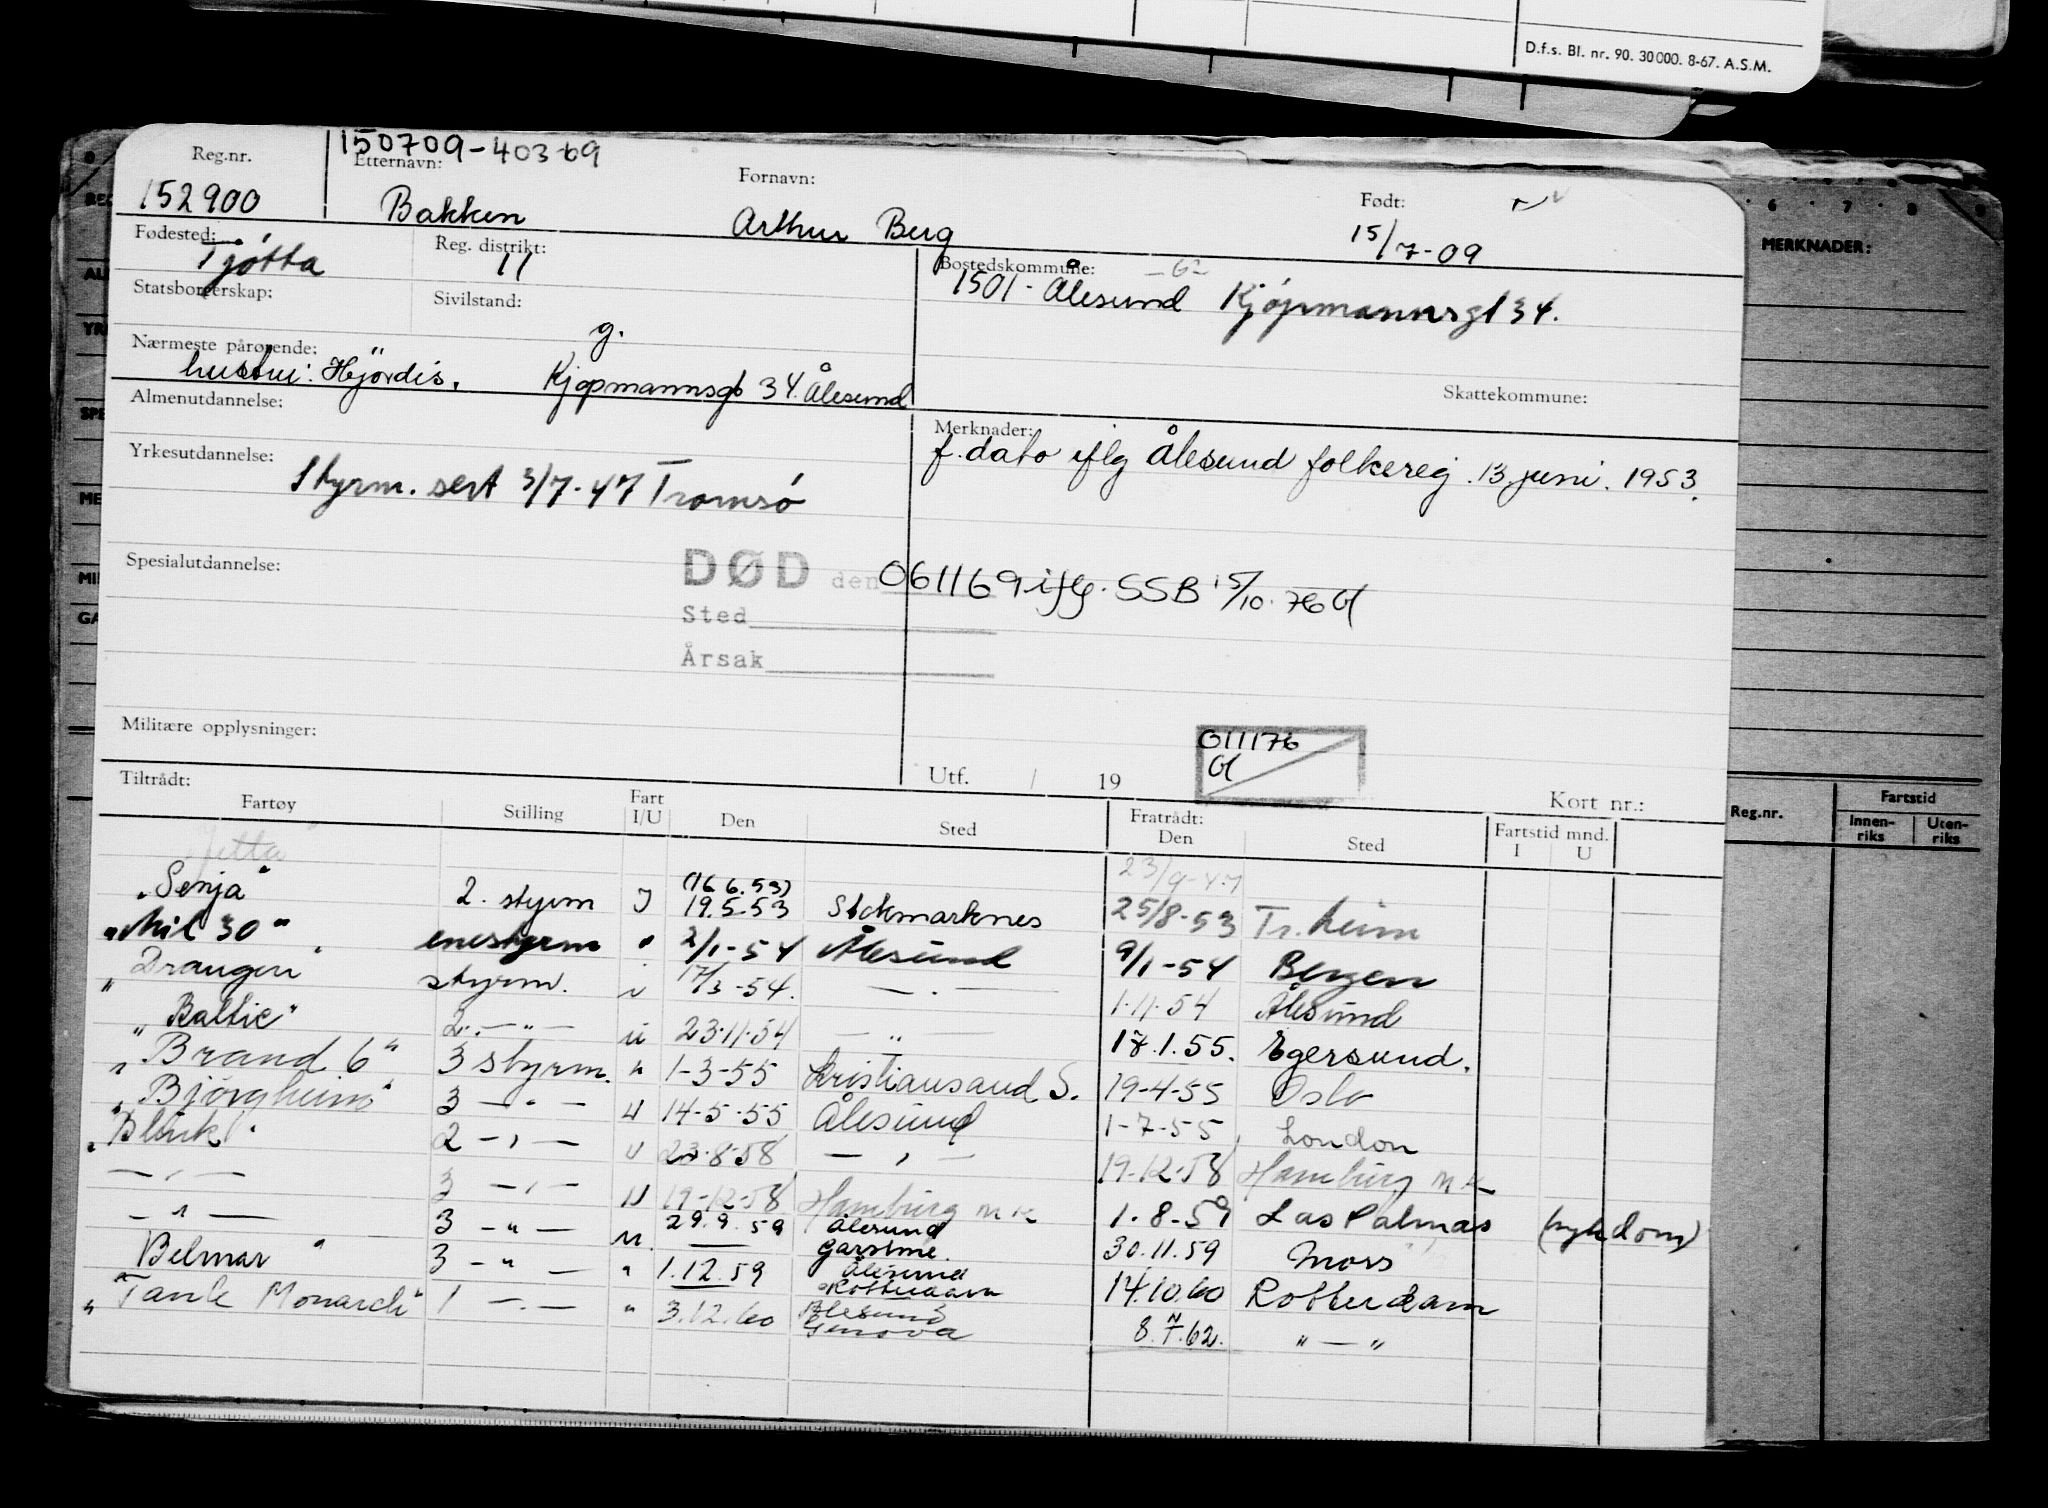 D.f.s. Bl. nr. 90. 30 000. 8-67. A.S.M.
150709-40369
Reg.nr. Etternavn: Fornavn: Født:
152900 Bakken Arthur Berg 15/7-09
Fødested: Reg. distrikt: Bostedskommune:
Tjøtta 11 1501 - Ålesund Kjøpmannsgt 34.
Statsborgerskap: Sivilstand:
g.
Nærmeste pårørende:
hustru: Hjördis. Kjøpmannsgt 34. Ålesund
Skattekommune:
Almenutdannelse: Merknader:
f. dato iflg Ålesund folkereg. 13. juni. 1953.
Yrkesutdannelse:
Styrm. sert 3/7-47 Tromsø
Spesialutdannelse:
DØD den 061169 iflg. SSB 15/10.76
Sted
Årsak
Militære opplysninger:
011176
Utf. / 19
Kort nr.:
Tiltrådt: Fratrådt:
Fartøy Stilling Fart I/U Den Sted Den Sted Fartstid mnd. I U
23/9-47
"Senja" 2. styrm I (16.6.53) 19.5.53 Stokmarknes 25/8-53 Tr.heim
"Mil 30" enestyrm " 2/1-54 Ålesund 9/1-54 Bergen
"Draugen" styrm. 17/3-54. — . — 1.11.54 Ålesund
"Baltic" 2. — " — u 23.11.54 — " — 18.1.55. Egersund.
"Brand 6" 3 styrm. " 1-3-55 Kristiansand S. 19-4-55 Oslo
"Bjørgheim" 3 — " — u 14-5-55 Ålesund 1-7-55 London
"Blink" 2 — " — u 23.8.58 — " — 19-12-58 Hamburg m k
— " — 3 — " — u 19-12-58 Hamburg m k 1.8-59 Las Palmas (sykdom)
— " — 3 — " — u. 29.9.59 Ålesund 30.11.59 Moss
Belmar " 3 — " — " 1.12.59 Ålesund Rotterdam 14.10.60 Rotterdam
"Tank Monarch" 1 — " — " 3.12.60 Ålesund Genova 8.7.62. " — "
MERKNADER:
6 7 8 9
Reg.nr. Fartstid
Innenriks Utenriks